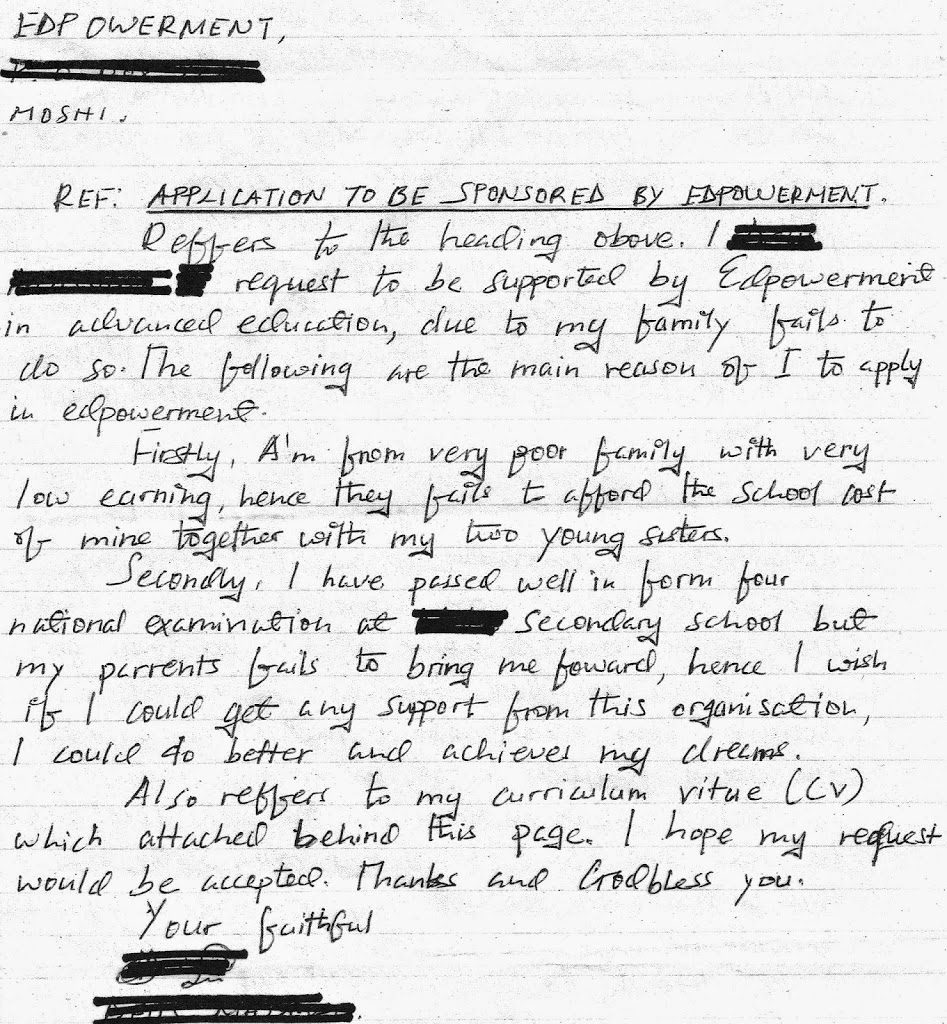 EDPOWERMENT,
MOSHI.
REF: APPLICATION TO BE SPONSORED BY EDPOWERMENT.
Reffers to the heading above. I
request to be supported by Edpowerment
in advanced education, due to my family fails to
do so. The following are the main reason of I to apply
in edpowerment.
Firstly, A'm from very poor family with very
low earning, hence they fails to afford the school cost
of mine together with my two young sisters.
Secondly, I have passed well in form four
national examination at secondary school but
my parrents fails to bring me foward, hence I wish
if I could get any support from this organisation,
I could do better and achieves my dreams.
Also reffers to my curriculum vitae (CV)
which attached behind this page. I hope my request
would be accepted. Thanks and Godbless you.
Your faithful